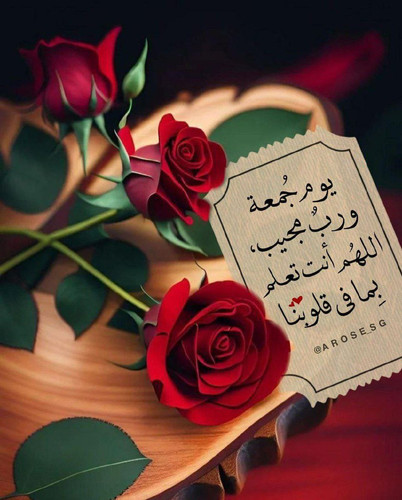 يوم جُمعة
وربٌ مجيب،
اللهُم أنت تعلم
بِما في قلوبنا
@AROSE_SG